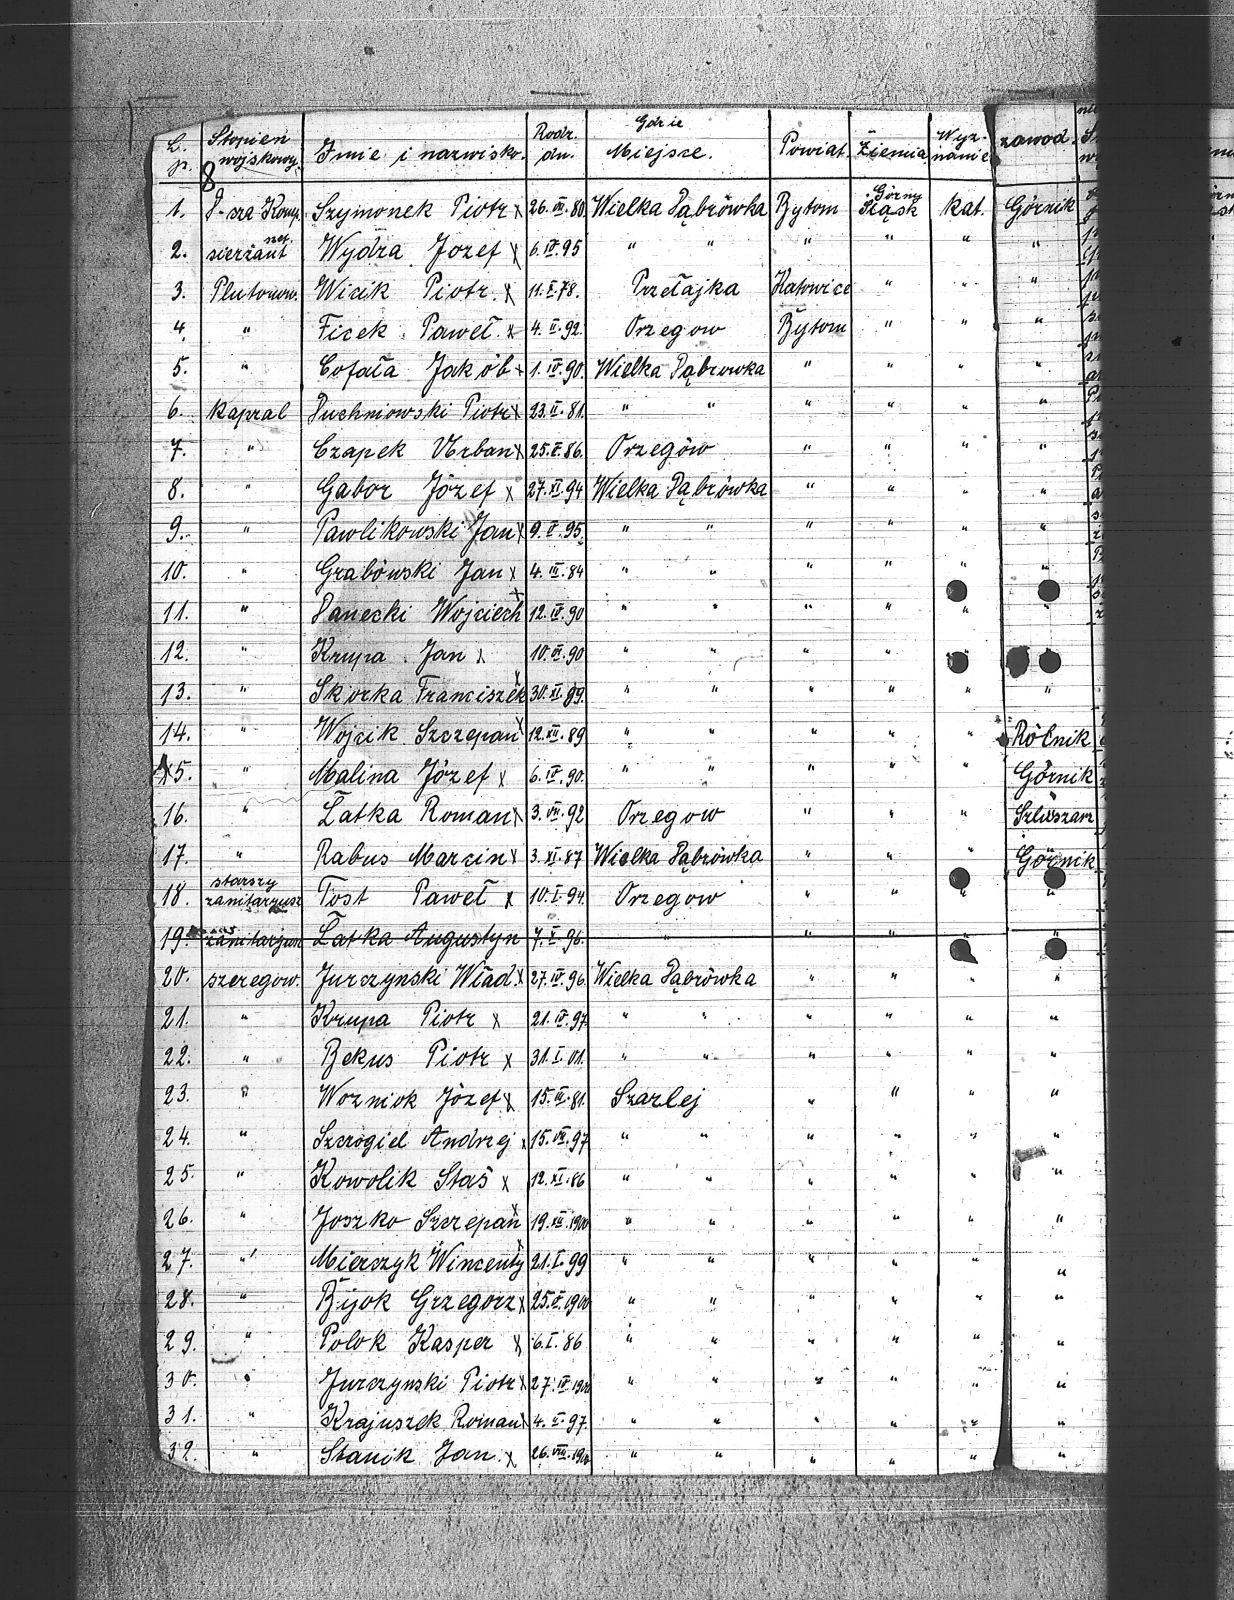 L. p. Stopień wojskowy Imie i nazwisko. Rodz. dn. Gdzie Miejsce. Powiat Ziemia Wyz-nanie zawod.
8
1. D-sza Komp. Szymonek Piotr x 26.VI.80. Wielka Dąbrówka Bytom Górny Śląsk kat. Górnik
2. sierżant Wydra Jozef x 6.IV.95 " " " " " "
3. Plutonow. Wicik Piotr. x 11.I.78. Przełajka Katowice " " "
4. " Ficek Paweł x 4.II.92. Orzegow Bytom " " "
5. " Cofała Jakób x 1.IV.90. Wielka Dąbrowka " " " "
6. Kapral Duchniowski Piotr x 23.II.81. " " " " " "
7. " Czapek Urban x 25.V.86. Orzegów " " " "
8. " Gabor Józef x 27.XI.94 Wielka Dąbrówka " " " "
9. " Pawlikowski Jan x 9.V.95. " " " " " "
10. " Grabówski Jan x 4.III.84 " " " " " "
11. " Danecki Wojciech x 12.IV.90 " " " " "
12. " Krupa Jan x 10.VI.90 " " " " "
13. " Skorka Franciszek x 30.XI.89. " " " " " "
14. " Wojcik Szczepan x 12.XII.89 " " " " " Rólnik
15. " Malina Józef x 6.IV.90. " " " " " Górnik
16. " Łatka Roman x 3.VII.92 Orzegow " " " Szluszarz
17. " Rabus Marcin x 3.XI.87 Wielka Dąbrówka " " " Górnik
18. starszy zanitarjusz Tost Paweł x 10.I.94. Orzegow " " " "
19. zanitarjusz Łatka Augustyn 7.X.96. " " " "
20. szeregow. Jurczynski Wład. x 27.IV.96. Wielka Dąbrówka " " " "
21. " Krupa Piotr x 21.IV.97 " " " " " "
22. " Bekus Piotr x 31.I.01. " " " " " "
23. " Wozniok Józef x 15.III.81. Szarlej " " " "
24. " Szcrogiel Andrzej x 15.VII.97 " " " " " "
25. " Kowolik Staś x 12.XI.86 " " " " " "
26. " Joszko Szczepan x 19.XII.1900 " " " " " "
27. " Mierszyk Wincenty x 21.I.99 " " " " " "
28. " Bijok Grzegorz x 25.V.1900 " " " " " "
29. " Polok Kasper x 6.I.86 " " " " " "
30. " Jurczynski Piotr x 27.IV.1900 " " " " " "
31. " Krajuszek Roman x 4.II.97. " " " " " "
32. " Stanik Jan. x 26.VIII.1900 " " " " " "